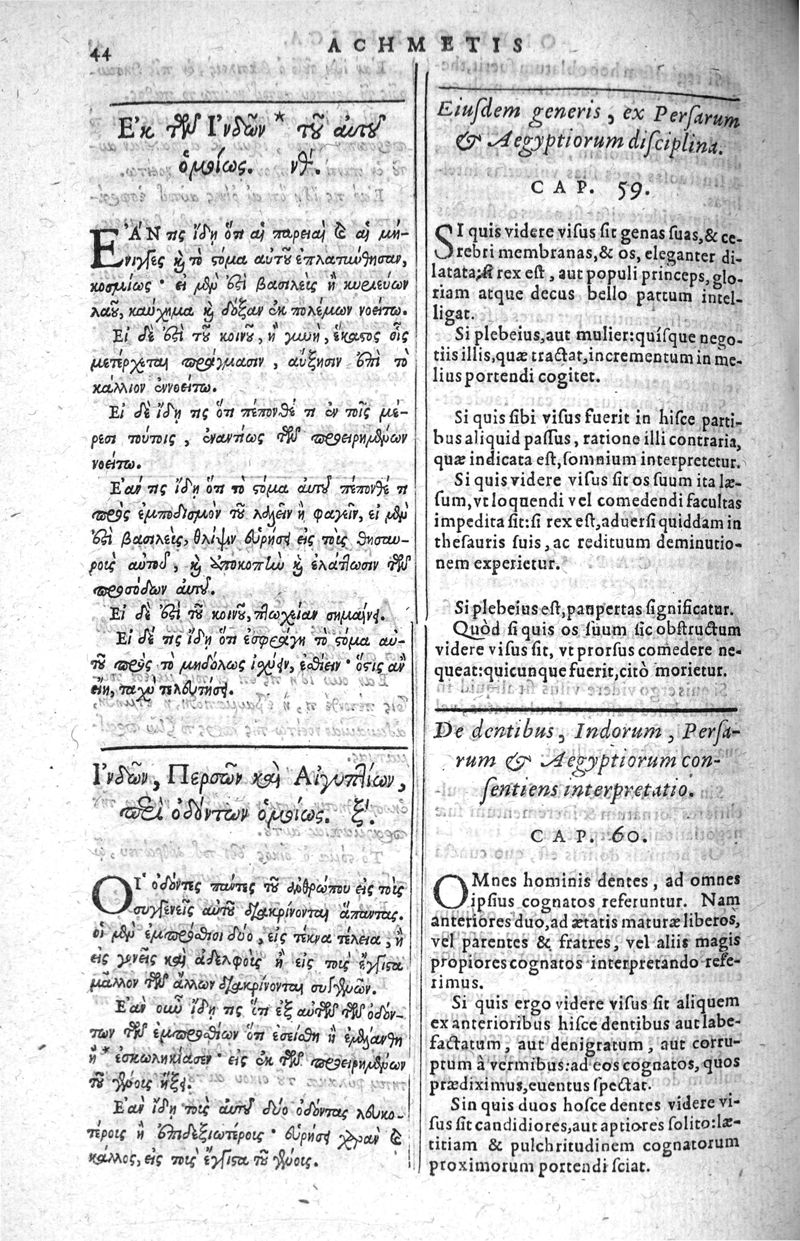 44
ACHMETIS
Ἐκ τῶν Ἰνδῶν * τοῦ αὐτοῦ
ὁμοίως. νθʹ.
ἘΑΝ τις ἴδῃ ὅτι αἱ παρειαὶ & αἱ μή-
νιγγες καὶ τὸ στόμα αὐτοῦ ἐπλατύνθησαν,
κοσμίως· εἰ μὲν ἐστὶ βασιλεὺς ἢ κυριεύων
λαοῦ, καύχημα καὶ δόξαν ἐκ πολέμων νοείτω.
Εἰ δὲ ἐστὶ τοῦ κοινοῦ, ἢ γυνὴ, ἕκαστος οἷς
μετέρχεται πράγμασιν, αὔξησιν ἐπὶ τὸ
κάλλιον ἐννοείτω.
Εἰ δὲ ἴδῃ τις ὅτι πέπονθέ τι ἐν τοῖς μέ-
ρεσι τούτοις, ἐναντίως τῶν προειρημένων
νοείτω.
Ἐάν τις ἴδῃ ὅτι τὸ στόμα αὐτοῦ πέπονθέ τι
πρὸς ἐμποδισμὸν τοῦ λαλεῖν ἢ φαγεῖν, εἰ μὲν
ἐστὶ βασιλεὺς, θλίψιν εὑρήσει εἰς τοὺς θησαυ-
ροὺς αὐτοῦ, καὶ ἀποκοπὴν καὶ ἐλάττωσιν τῶν
προσόδων αὐτοῦ.
Εἰ δὲ ἐστὶ τοῦ κοινοῦ, πτωχείαν σημαίνει.
Εἰ δέ τις ἴδῃ ὅτι ἐσφράγη τὸ στόμα αὐ-
τοῦ πρὸς τὸ μηδόλως ἰσχύειν, ἐσθίειν· ὅστις ἂν
εἴη, ταχὺ τελευτήσει.
Ἰνδῶν, Περσῶν καὶ Αἰγυπτίων,
περὶ ὀδόντων ὁμοίως. ξʹ.
Οἱ ὀδόντες πάντες τοῦ ἀνθρώπου εἰς τοὺς
συγγενεῖς αὐτοῦ διακρίνονται ἅπαντας.
οἱ μὲν ἐμπρόσθιοι δύο, εἰς τέκνα τέλεια, ἢ
εἰς γονεῖς καὶ ἀδελφοὺς ἢ εἰς τοὺς ἔγγιστα
μᾶλλον τῶν ἄλλων διακρίνονται συγγενῶν.
Ἐὰν οὖν ἴδῃ τις ὅτι ἐξ αὐτῶν τῶν ὀδόν-
των τῶν ἐμπροσθίων ὅτι ἐσείσθη ἢ ἐμελάνθη
ἢ * ἐσκωληκίασεν· εἰς ἐκ τῶν προειρημένων
τοῦ γένους ἥξει.
Ἐὰν ἴδῃ τοὺς αὐτοῦ δύο ὀδόντας λευκο-
τέρους ἢ ἐπιδεξιωτέρους· εὑρήσει χαρὰν &
κάλλος, εἰς τοὺς ἔγγιστα τοῦ γένους.
Eiusdem generis, ex Persarum
& Aegyptiorum disciplina.
CAP. 59.
SI quis videre visus sit genas suas, & ce-
rebri membranas, & os, eleganter di-
latata; si rex est, aut populi princeps, glo-
riam atque decus bello partum intel-
ligat.
Si plebeius, aut mulier: quisque nego-
tiis illis, quæ tractat, incrementum in me-
lius portendi cogitet.
Si quis sibi visus fuerit in hisce parti-
bus aliquid passus, ratione illi contraria,
quæ indicata est, somnium interpretetur.
Si quis videre visus sit os suum ita læ-
sum, vt loquendi vel comedendi facultas
impedita sit: si rex est, aduersi quiddam in
thesauris suis, ac redituum deminutio-
nem experietur.
Si plebeius est, paupertas significatur.
Quòd si quis os suum sic obstructum
videre visus sit, vt prorsus comedere ne-
queat: quicunque fuerit, citò morietur.
De dentibus, Indorum, Persa-
rum & Aegyptiorum con-
sentiens interpretatio.
CAP. 60.
OMnes hominis dentes, ad omnes
ipsius cognatos referuntur. Nam
anteriores duo, ad ætatis maturæ liberos,
vel parentes & fratres, vel aliis magis
propiores cognatos interpretando refe-
rimus.
Si quis ergo videre visus sit aliquem
ex anterioribus hisce dentibus aut labe-
factatum, aut denigratum, aut corru-
ptum à vermibus: ad eos cognatos, quos
prædiximus, euentus spectat.
Sin quis duos hosce dentes videre vi-
sus sit candidiores, aut aptiores solito: læ-
titiam & pulchritudinem cognatorum
proximorum portendi sciat.